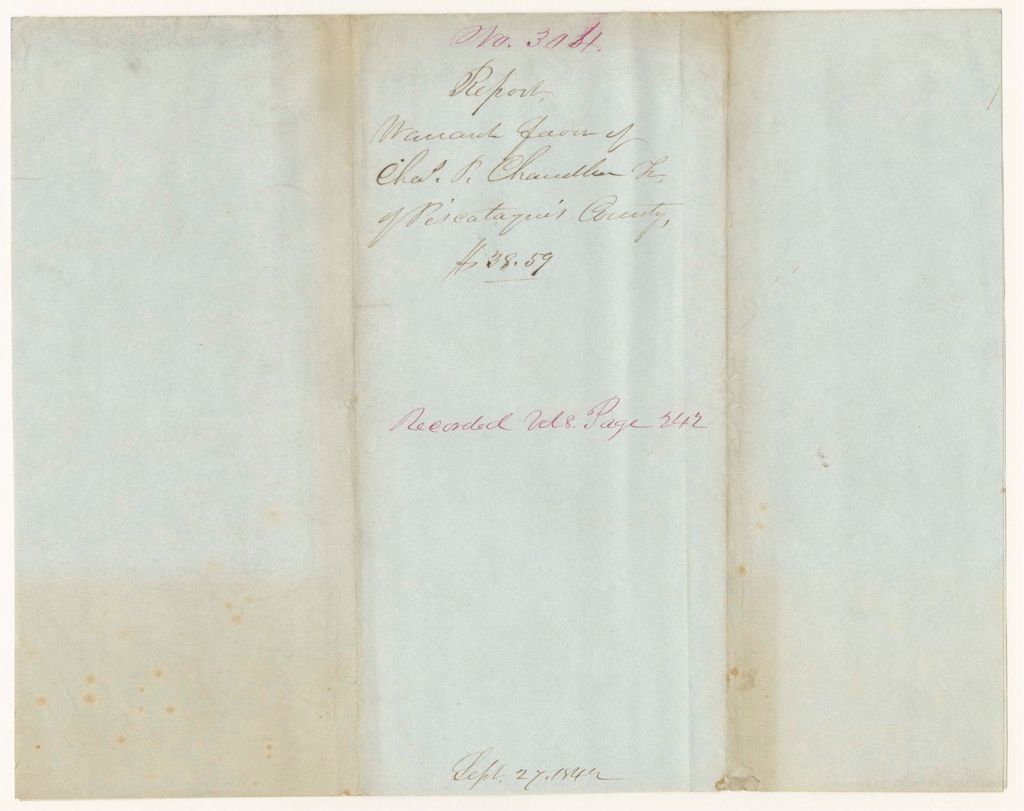 No. 304.
Report
Warrant favor of
Chas. P. Chandler Tr.
of Piscataquis County,
$38.59
Recorded Vol 8. Page 242
Sept. 27. 1842